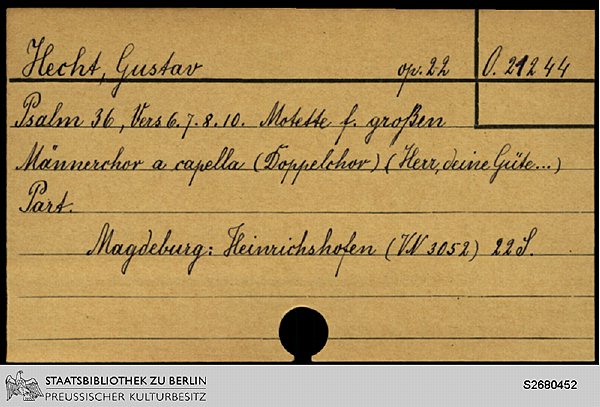 Hecht, Gustav op. 22 O. 21244
Psalm 36, Vers 6. 7. 8. 10. Motette f. großen
Männerchor a capella (Doppelchor) (Herr, deine Güte...)
Part.
Magdeburg: Heinrichshofen (VN 3052) 22 S.
STAATSBIBLIOTHEK ZU BERLIN
PREUSSISCHER KULTURBESITZ
S2680452